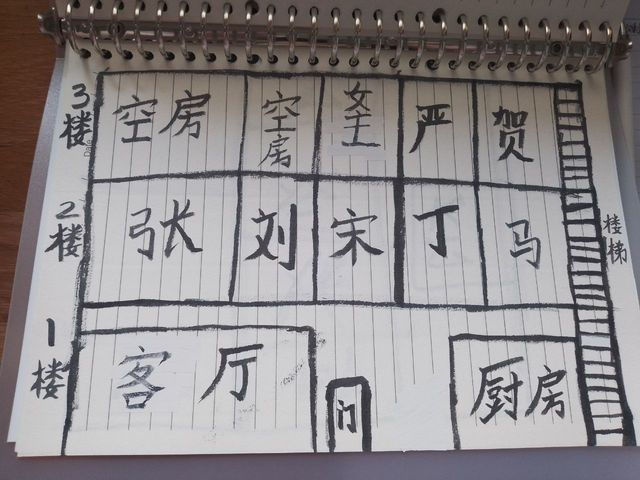 3楼 空房 空房 女主 严 贺
2楼 张 刘 宋 丁 马 楼梯
1楼 客厅 门 厨房